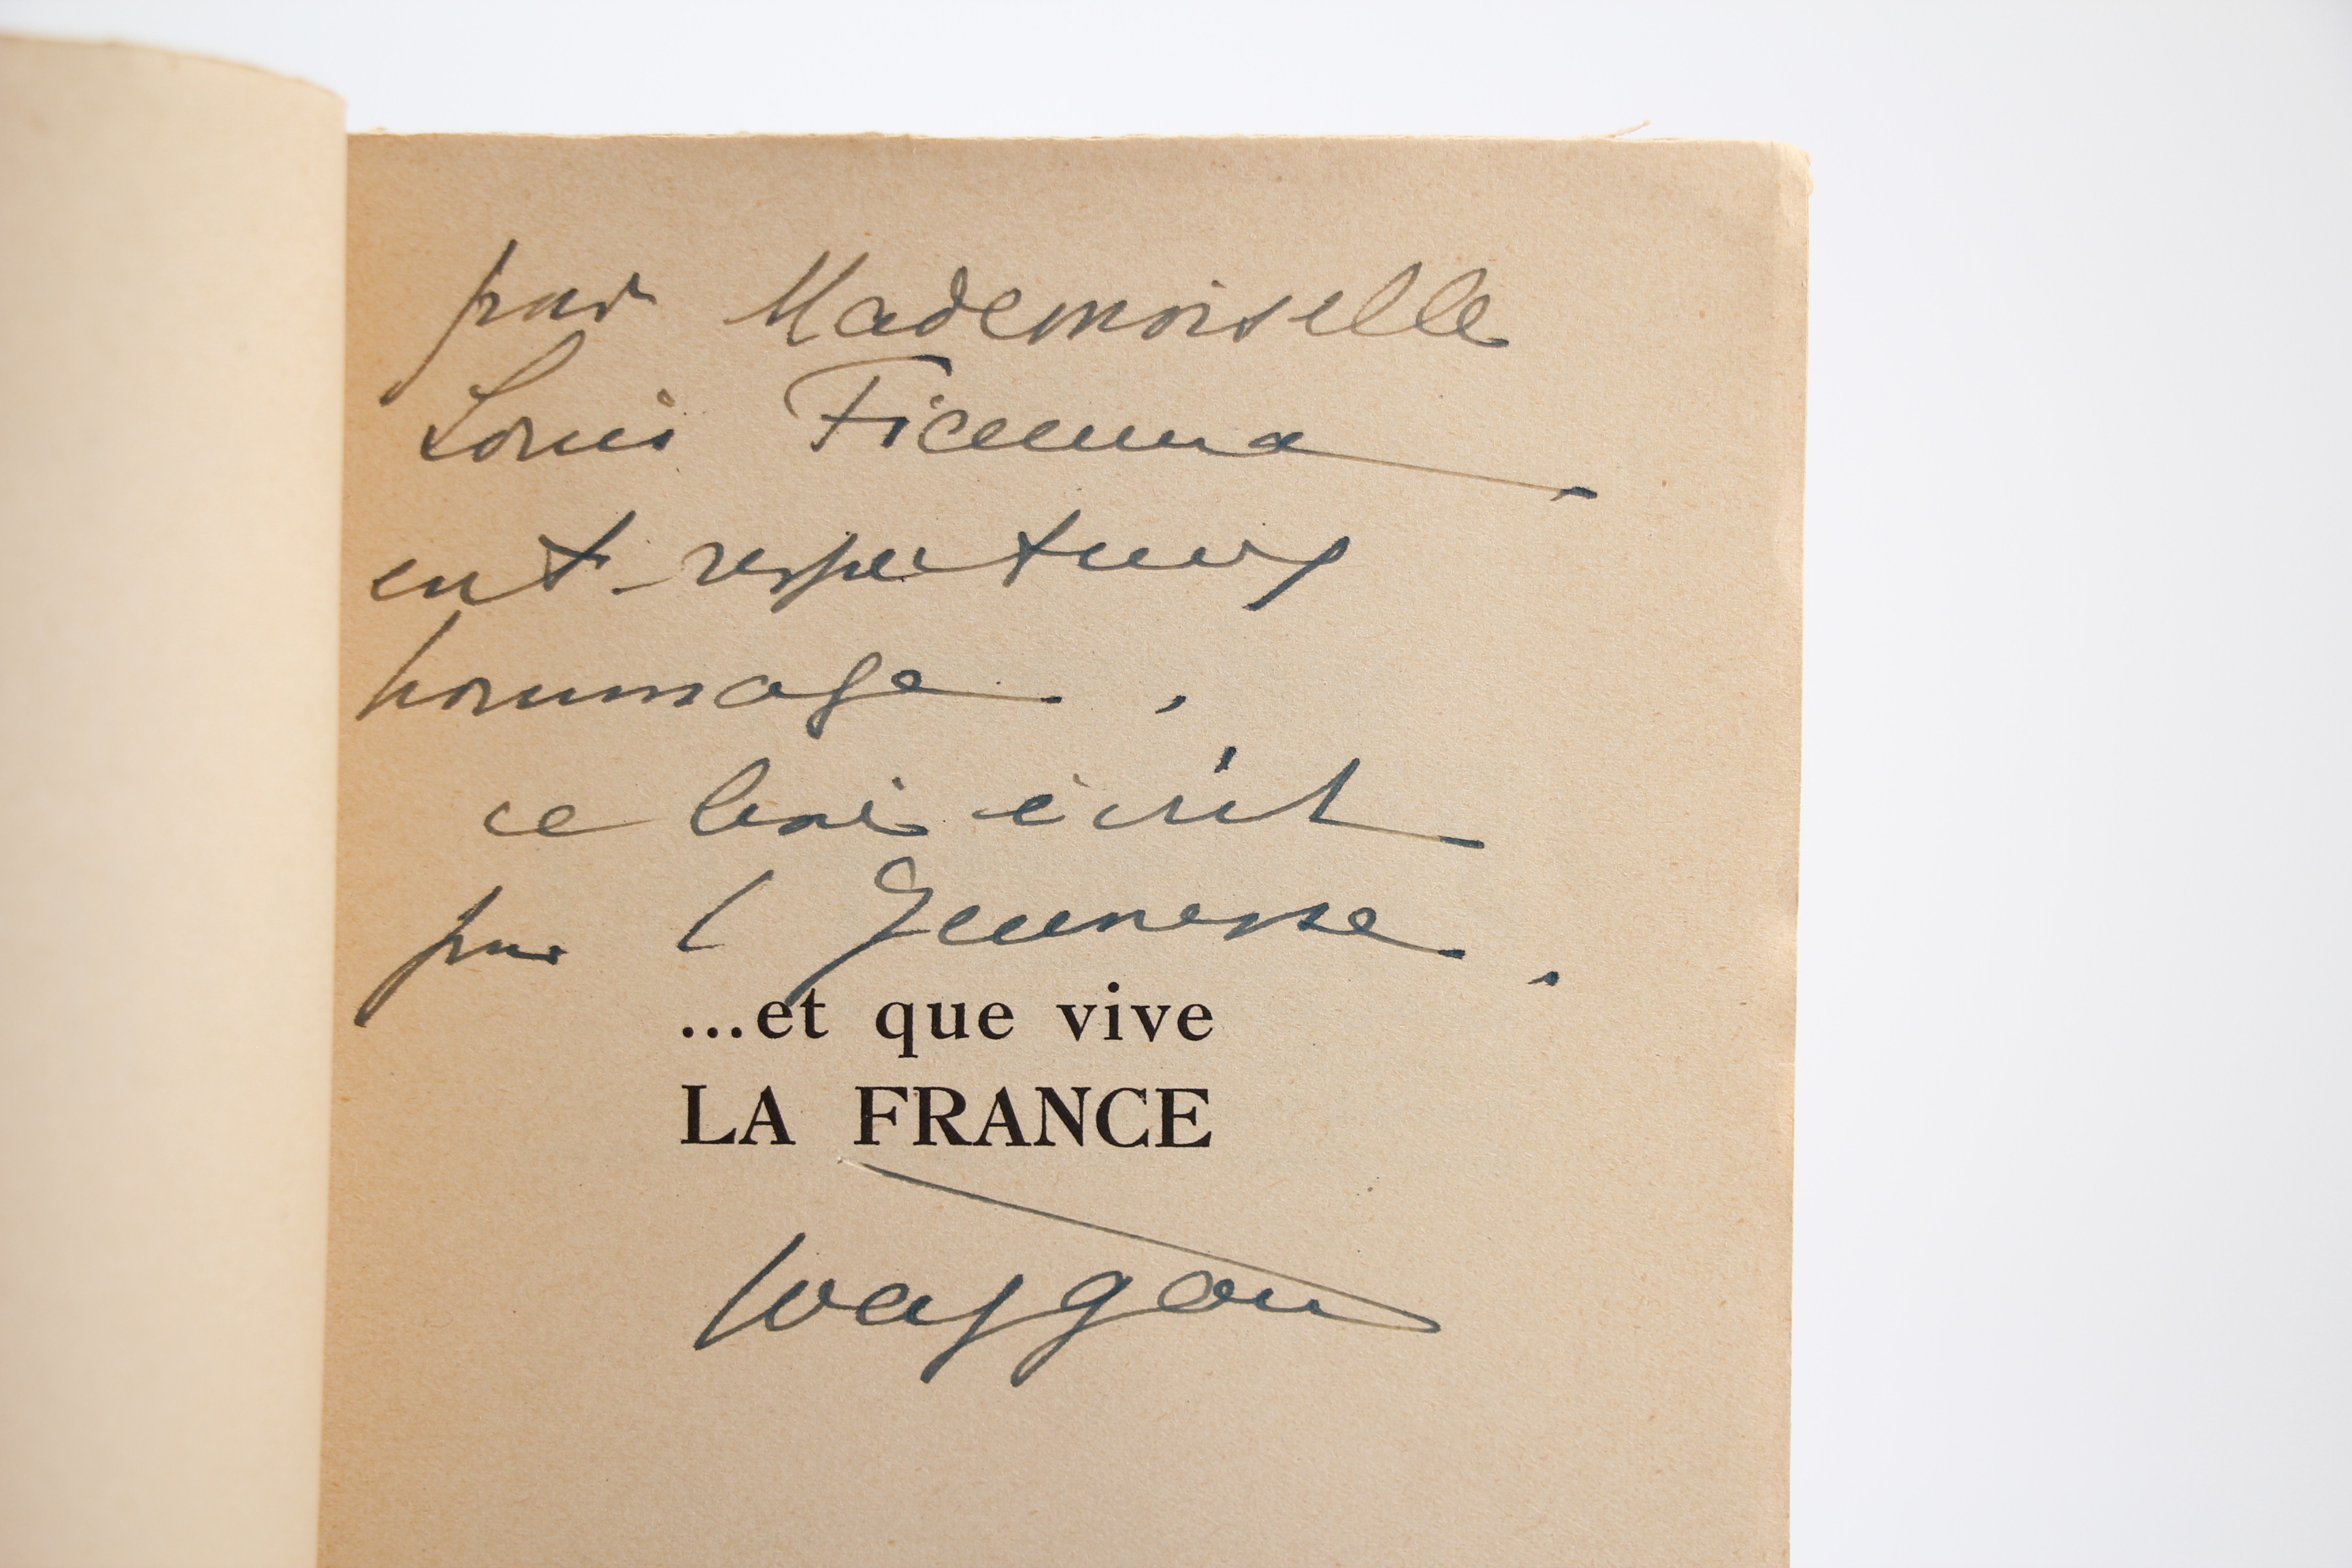 pour Mademoiselle
Louis
en très respectueux
hommage,
ce livre écrit
pour la Jeunesse.
...et que vive
LA FRANCE
Weygand